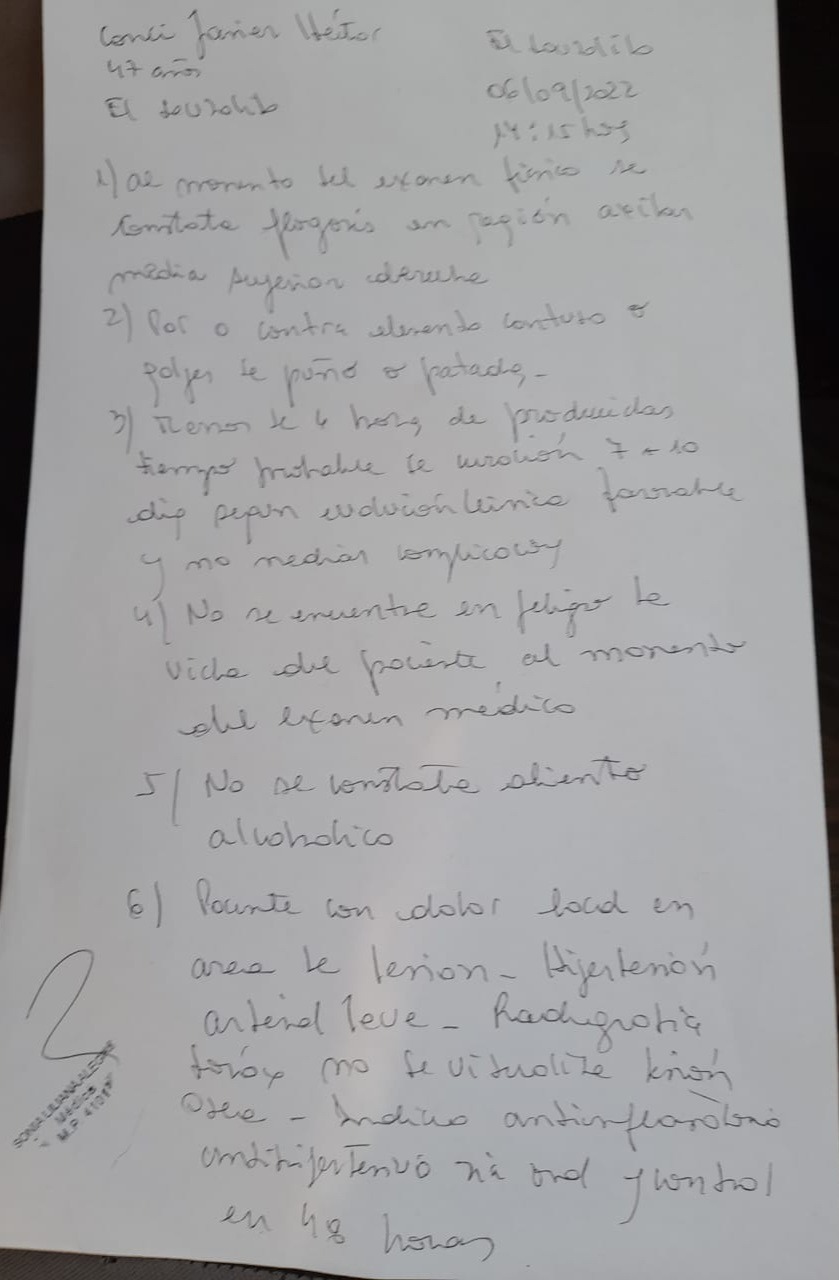 Conci Javier Héctor
47 años
El Sauzalito
El Sauzalito
06/09/2022
14:15 hrs
1) al momento del examen físico se
constata flogosis en región axilar
media superior derecha
2) Por o contra elemento contuso o
golpes de puño o patada -
3) Menor de 4 horas de producidas
tiempo probable de curación 7 a 10
días según evolución clínica favorable
y no mediar
4) No se encuentra en peligro la
vida del paciente al momento
del examen médico
5) No se constata aliento
alcoholico
6) Paciente con dolor local en
area de lesion - Hipertensión
arterial leve - Radiografía
tórax no se visualiza lesión
Osea - Indico antiinflamatorio
antihipertensivo vía oral y control
en 48 horas
SONIA LILIANA ALEGRE
Médica
M.P.